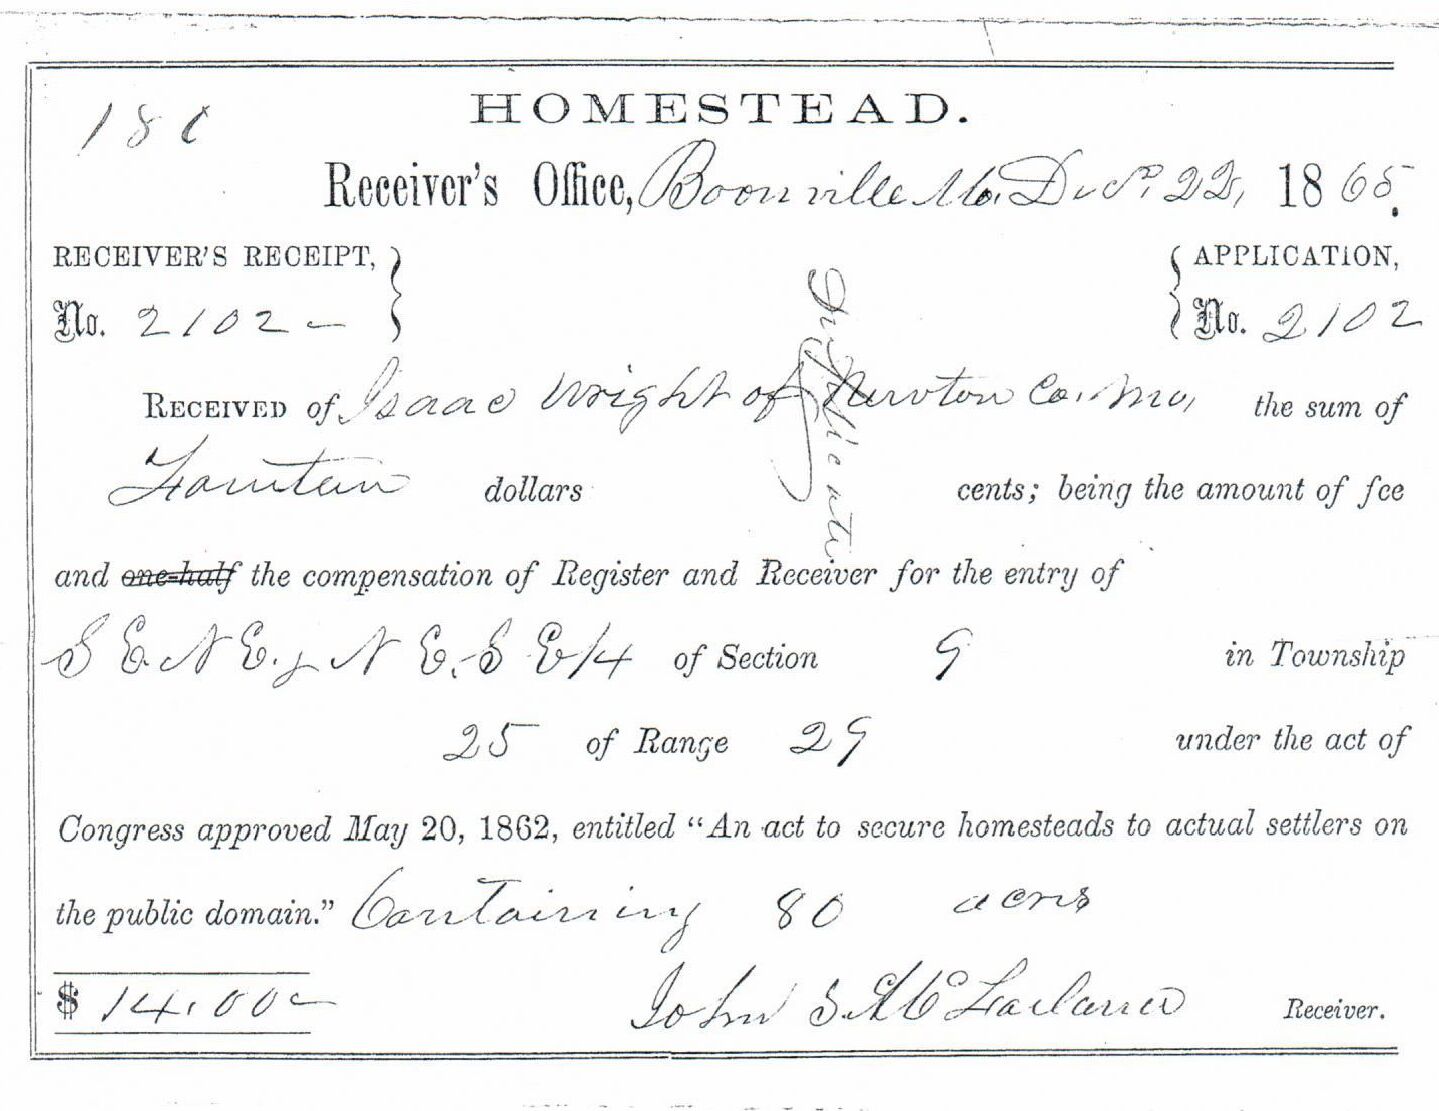 HOMESTEAD.
Receiver's Office, Boonville Mo. Dec. 22, 1865.
RECEIVER'S RECEIPT, No. 2102
APPLICATION, No. 2102
Duplicate
RECEIVED of Isaac Wright of Newton Co. Mo, the sum of
Fourteen dollars cents; being the amount of fee
and one-half the compensation of Register and Receiver for the entry of
S E. N E. & N E. S E /4 of Section 9 in Township
25 of Range 29 under the act of
Congress approved May 20, 1862, entitled “An act to secure homesteads to actual settlers on
the public domain.” Containing 80 acres
$ 14.00 John S. McFarland Receiver.